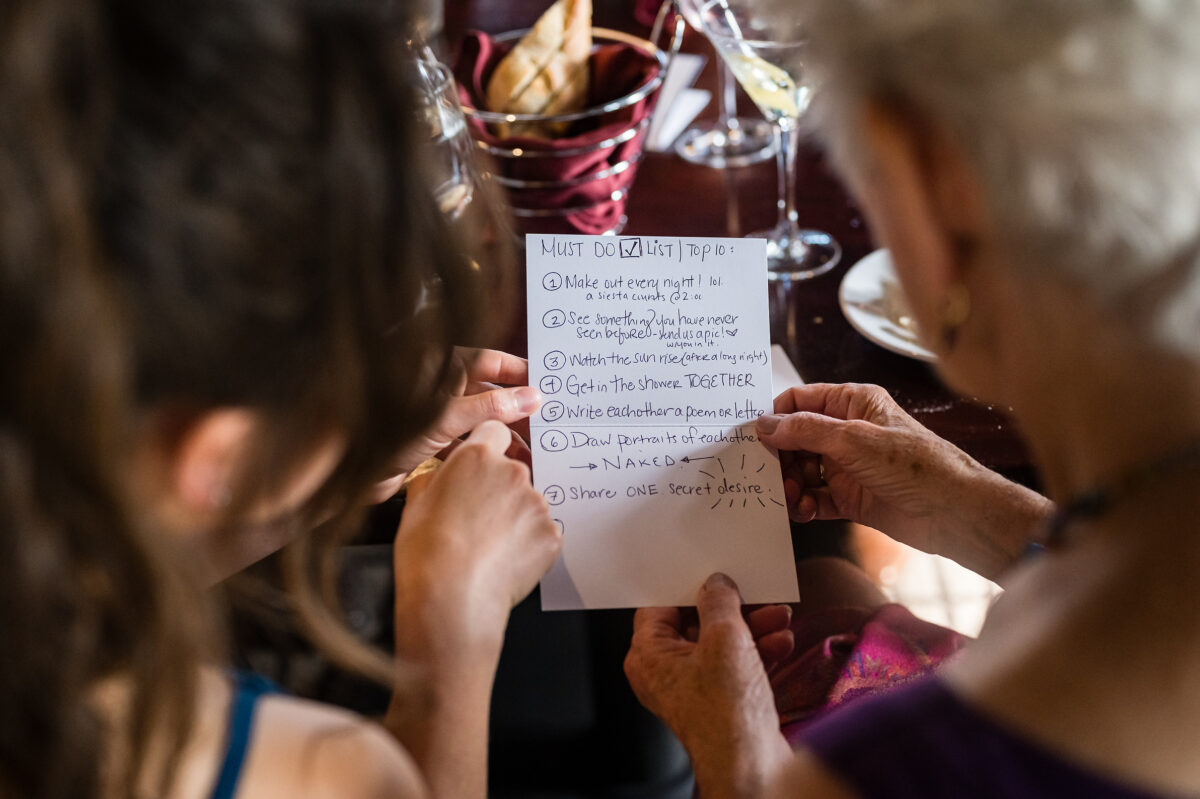 MUST DO ☑ LIST | TOP 10:
① Make out every night! lol.
a siesta counts @ 2:00
② See something you have never
seen before - send us a pic! ♡
w/ you in it.
③ Watch the sun rise (after a long night)
④ Get in the shower TOGETHER
⑤ Write eachother a poem or lette
⑥ Draw portraits of eachothe
→ NAKED. ←
⑦ Share ONE secret desire.